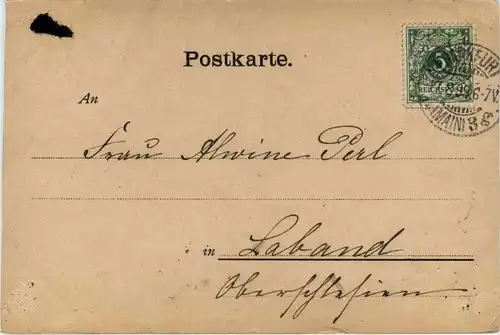 Postkarte.
5
REICHSPOST
An
(MAIN) 3
Frau Alwine Perl
in Laband
Oberschlesien